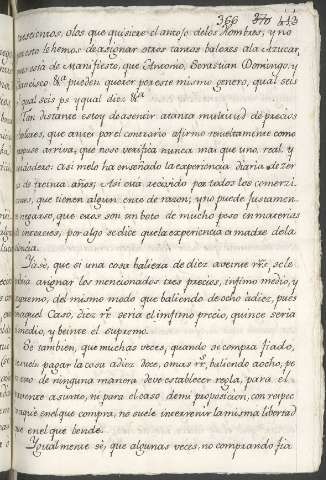 366 370 413
trescientos, olos que quisiere el antojo delos hombres, y no
por esto lehemos de asignar otros tantos balores ala Azucar,
es cosa de Manifiesto, que Antonio, Sevastian Domingo, y
Francisco &a pueden querer por este mismo genero, qual seis
qual seis ps y qual diez &a
Tan distante estoy de asentir atanta multitud de precios
balores, que antes por el contrario afirmo remitamente como
espuse arriva, que no se verifica nunca mas que uno, real, y
verdadero: asi melo ha enseñado la experiencia diaria de zer
de treinta años; Asi esta recivido por todos los comerzi
que tienen algun ento de razon; y no puede justamen
negarse, que estos son un boto de mucho peso en materias
intereses, por algo se dice que la experiencia es madre dela
ciencia.
Ya sé, que si una cosa baliera de diez aveinte rrs. se le
asignar los mencionados tres precios, infimo medio, y
supremo, del mismo modo que baliendo de ocho adiez, pues
aquel Caso, diez rrs seria el imfimo precio, quince seria
medio, y beinte el supremo.
Se tambien, que muchas veces, quando se compra fiado,
suelen pagar la cosa adiez doce, omas rrs, baliendo aocho, pe
esto de ninguna manera deve establecer regla, para el
presente asunto, ni para el caso demi proposicion, con respec
aque en el que compra, no suele intervenir la misma libertad
que en el que bende.
Ygualmente sé, que algunas veces, no comprando fia